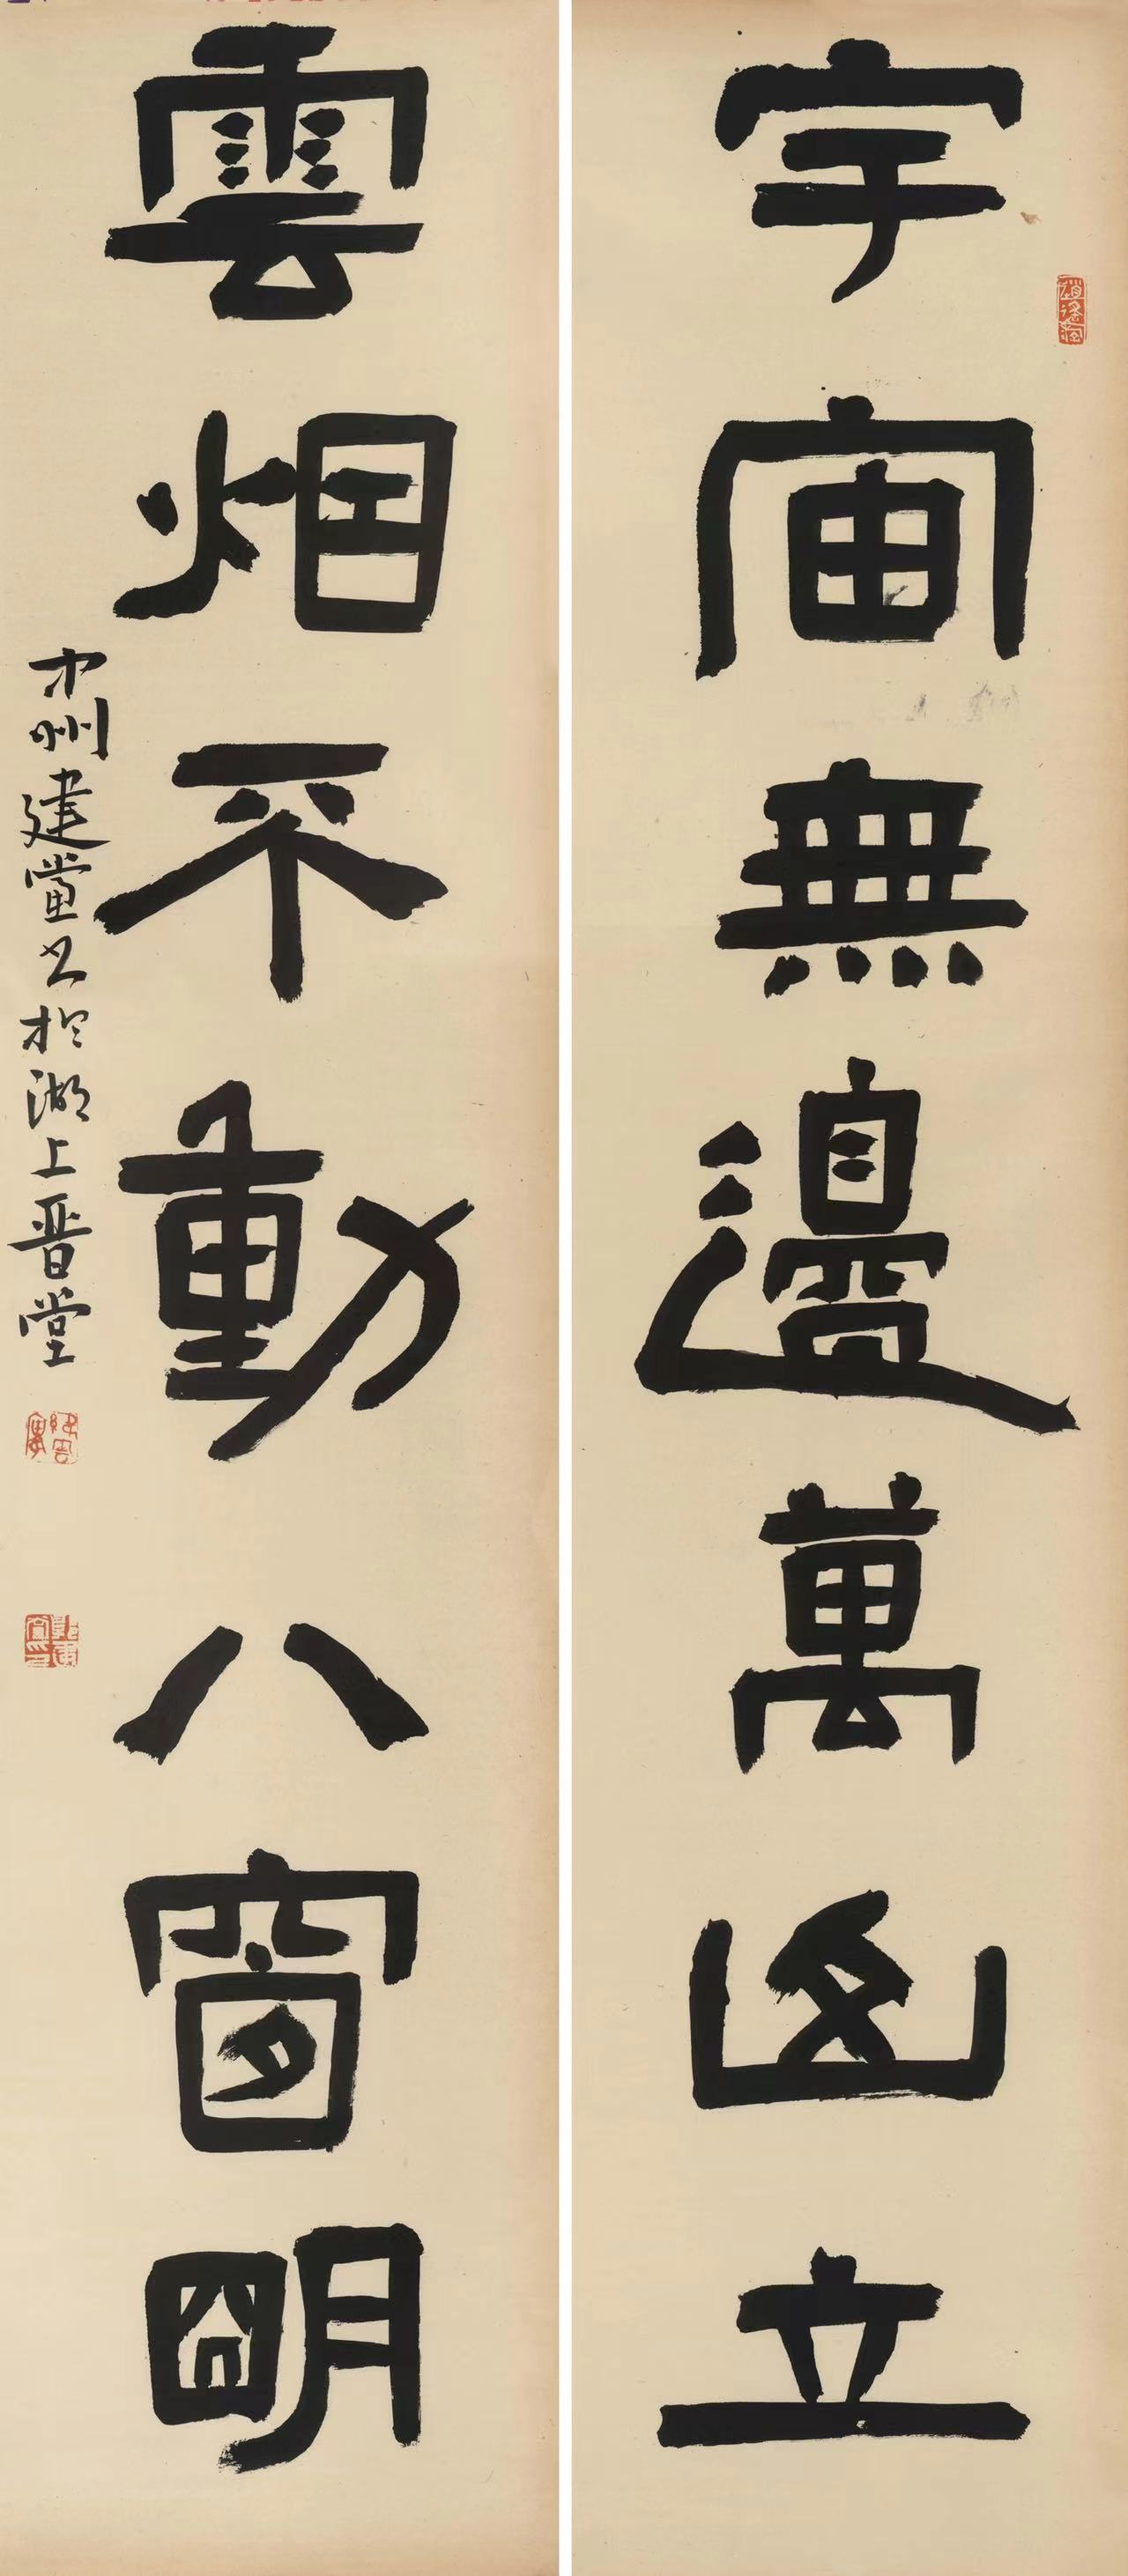 宇宙無邊萬山立
雲烟不動八窗明
中州建党書於湖上晋堂